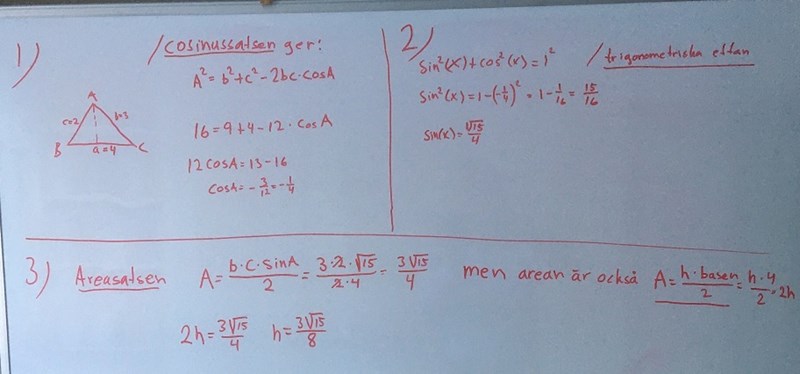 1)
/cosinussatsen ger:
A² = b² + c² - 2bc·cosA
A
c=2 b=3
B a=4 C
16 = 9+4-12·cosA
12cosA = 13-16
cosA = -3/12 = -1/4
2)
sin²(x)+cos²(x) = 1²
/trigonometriska ettan
sin²(x) = 1-(-1/4)² = 1-1/16 = 15/16
sin(x) = √15/4
3) Areasatsen A = b·c·sinA/2 = 3·2·√15/2·4 = 3√15/4 men arean är också A = h·basen/2 = h·4/2 = 2h
2h = 3√15/4 h = 3√15/8